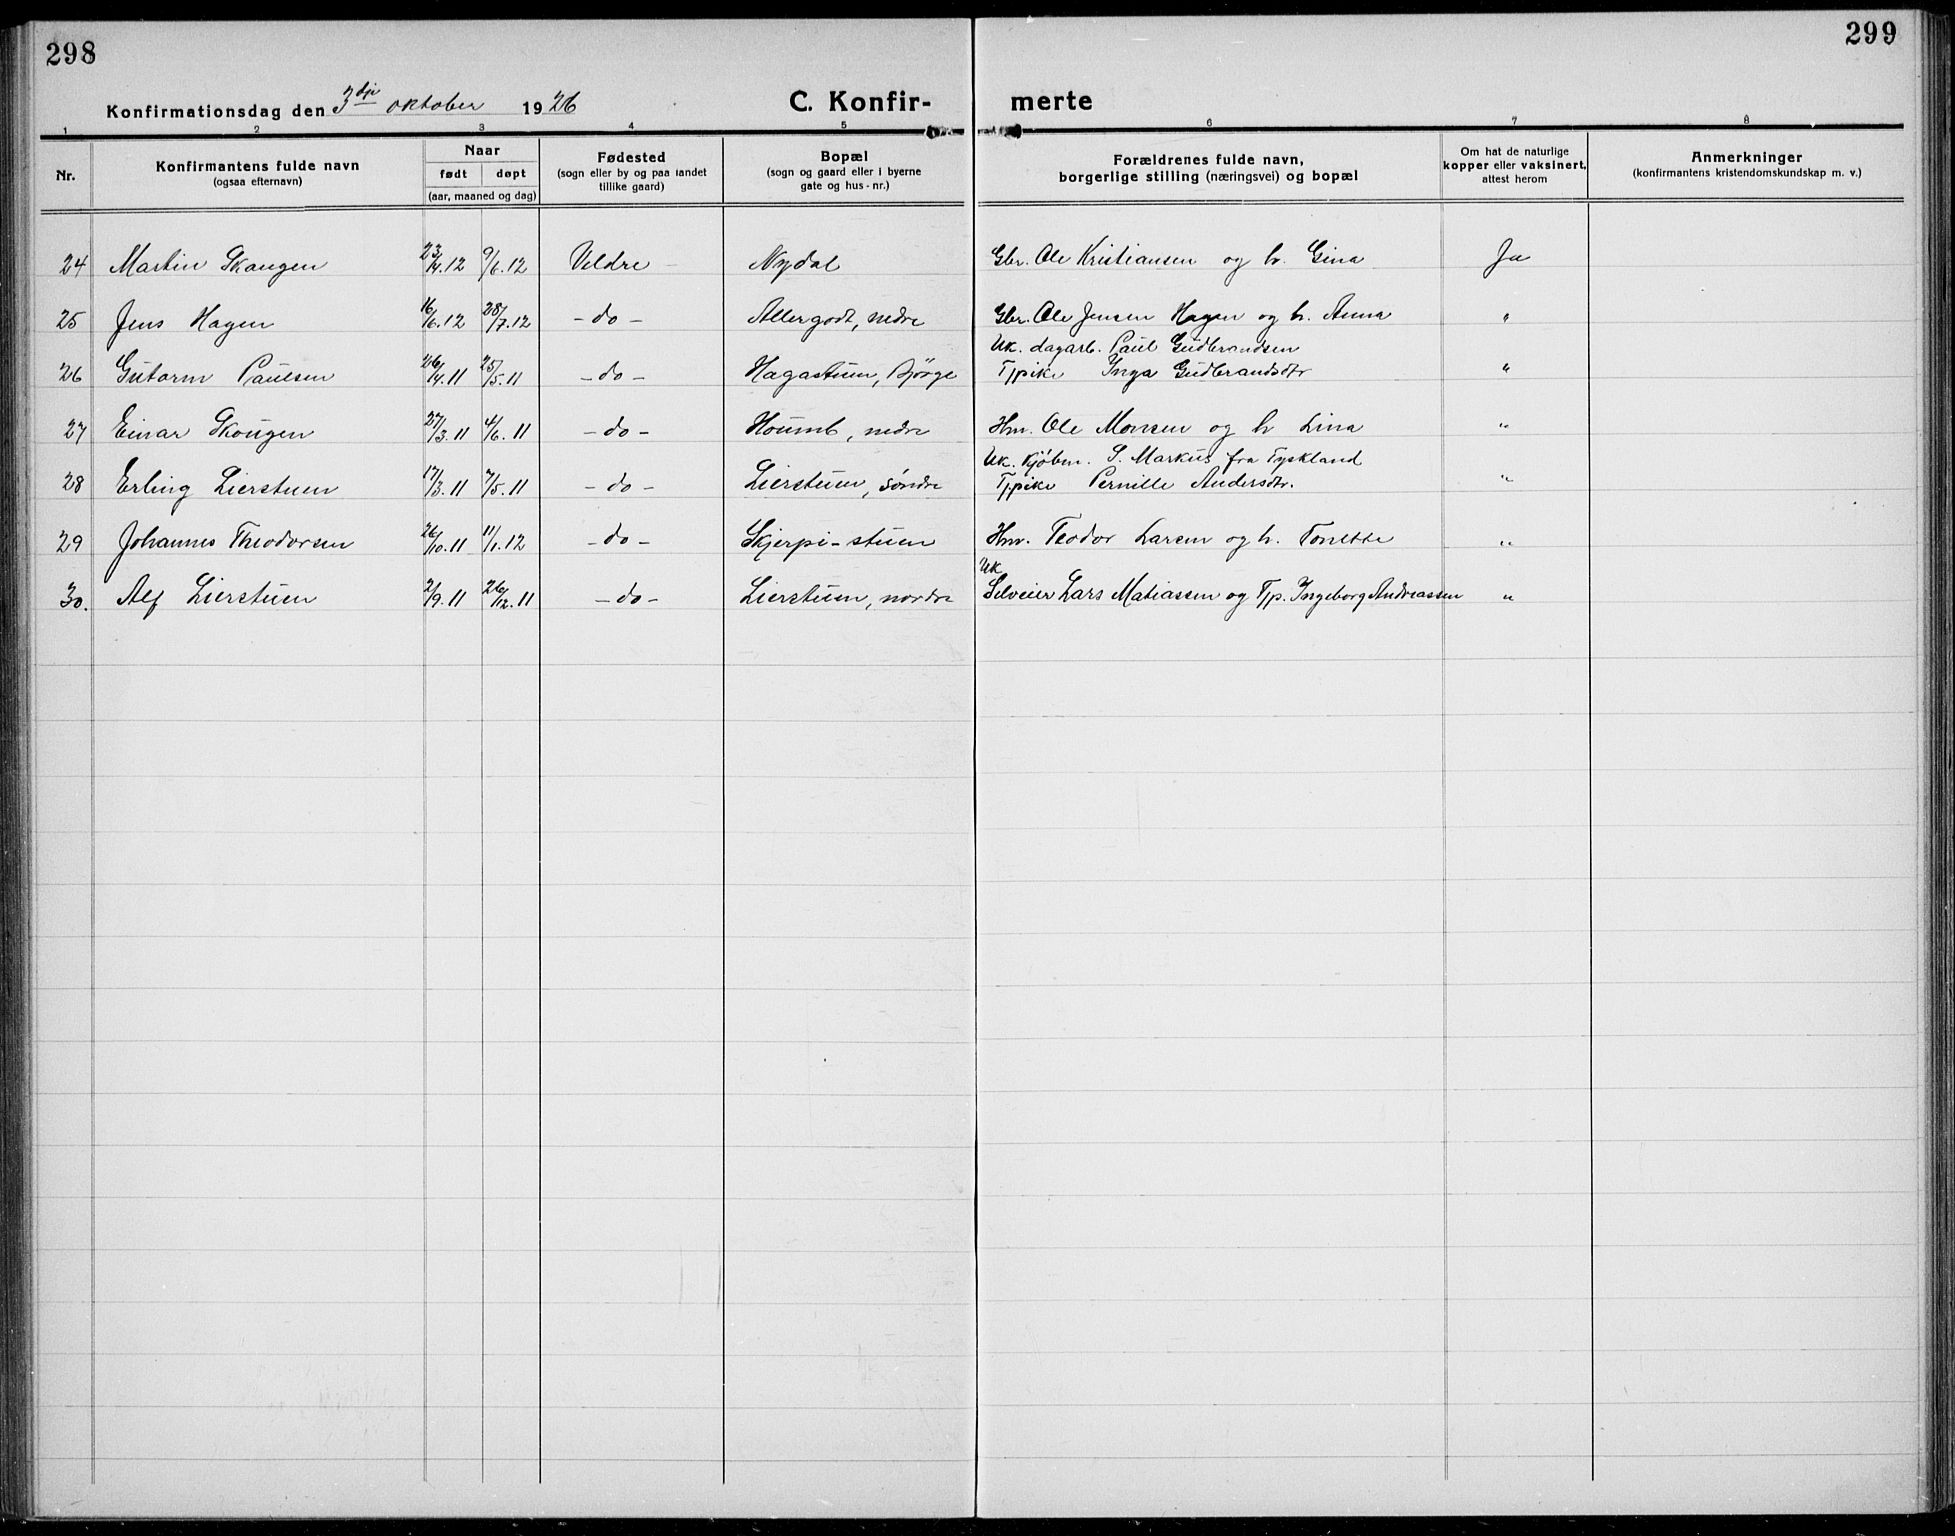 298
299
Konfirmationsdag den 3dje oktober 1926
C. Konfir-
merte
1 2 3 4 5 6 7 8
Nr.
Konfirmantens fulde navn
(ogsaa efternavn)
Naar
født døpt
(aar, maaned og dag)
Fødested
(sogn eller by og paa landet
tillike gaard)
Bopæl
(sogn og gaard eller i byerne
gate og hus-nr.)
Forældrenes fulde navn,
borgerlige stilling (næringsvei) og bopæl
Om hat de naturlige
kopper eller vaksinert,
attest herom
Anmerkninger
(konfirmantens kristendomskundskap m. v.)
24 Martin Skaugen 23/4.12 9/6.12 Veldre Nydal Gbr. Ole Kristiansen og h. Gina Ja
25 Jens Hagen 16/6.12 28/7.12 -do- Allergodt, nedre Gbr. Ole Jensen Hagen og h. Anna "
Uk. dagarb. Paul Gudbrandsen
26 Gutorm Paulsen 26/4.11 25/5.11 -do- Hagastuen, Bjørge Tjpike Inga Gudbrandsdtr "
27 Einar Skougen 27/3.11 4/6.11 -do- Houmb, nedre Hm. Ole Monsen og h Lina "
Uk. Kjøbm. S. Markus fra Tyskland
28 Erling Lierstuen 17/3.11 7/5.11 -do- Lierstuen, søndre Tjpike Pernille Andersdtr. "
29 Johannes Theodorsen 26/10.11 11/1.12 -do- Skjerpi-stuen Hm. Teodor Larsen og h. Tonette "
Uk
30. Alf Lierstuen 2/9.11 26/12.11 -do- Lierstuen, nordre Selveier Lars Matiassen og Tjp. Ingeborg Andreassen "